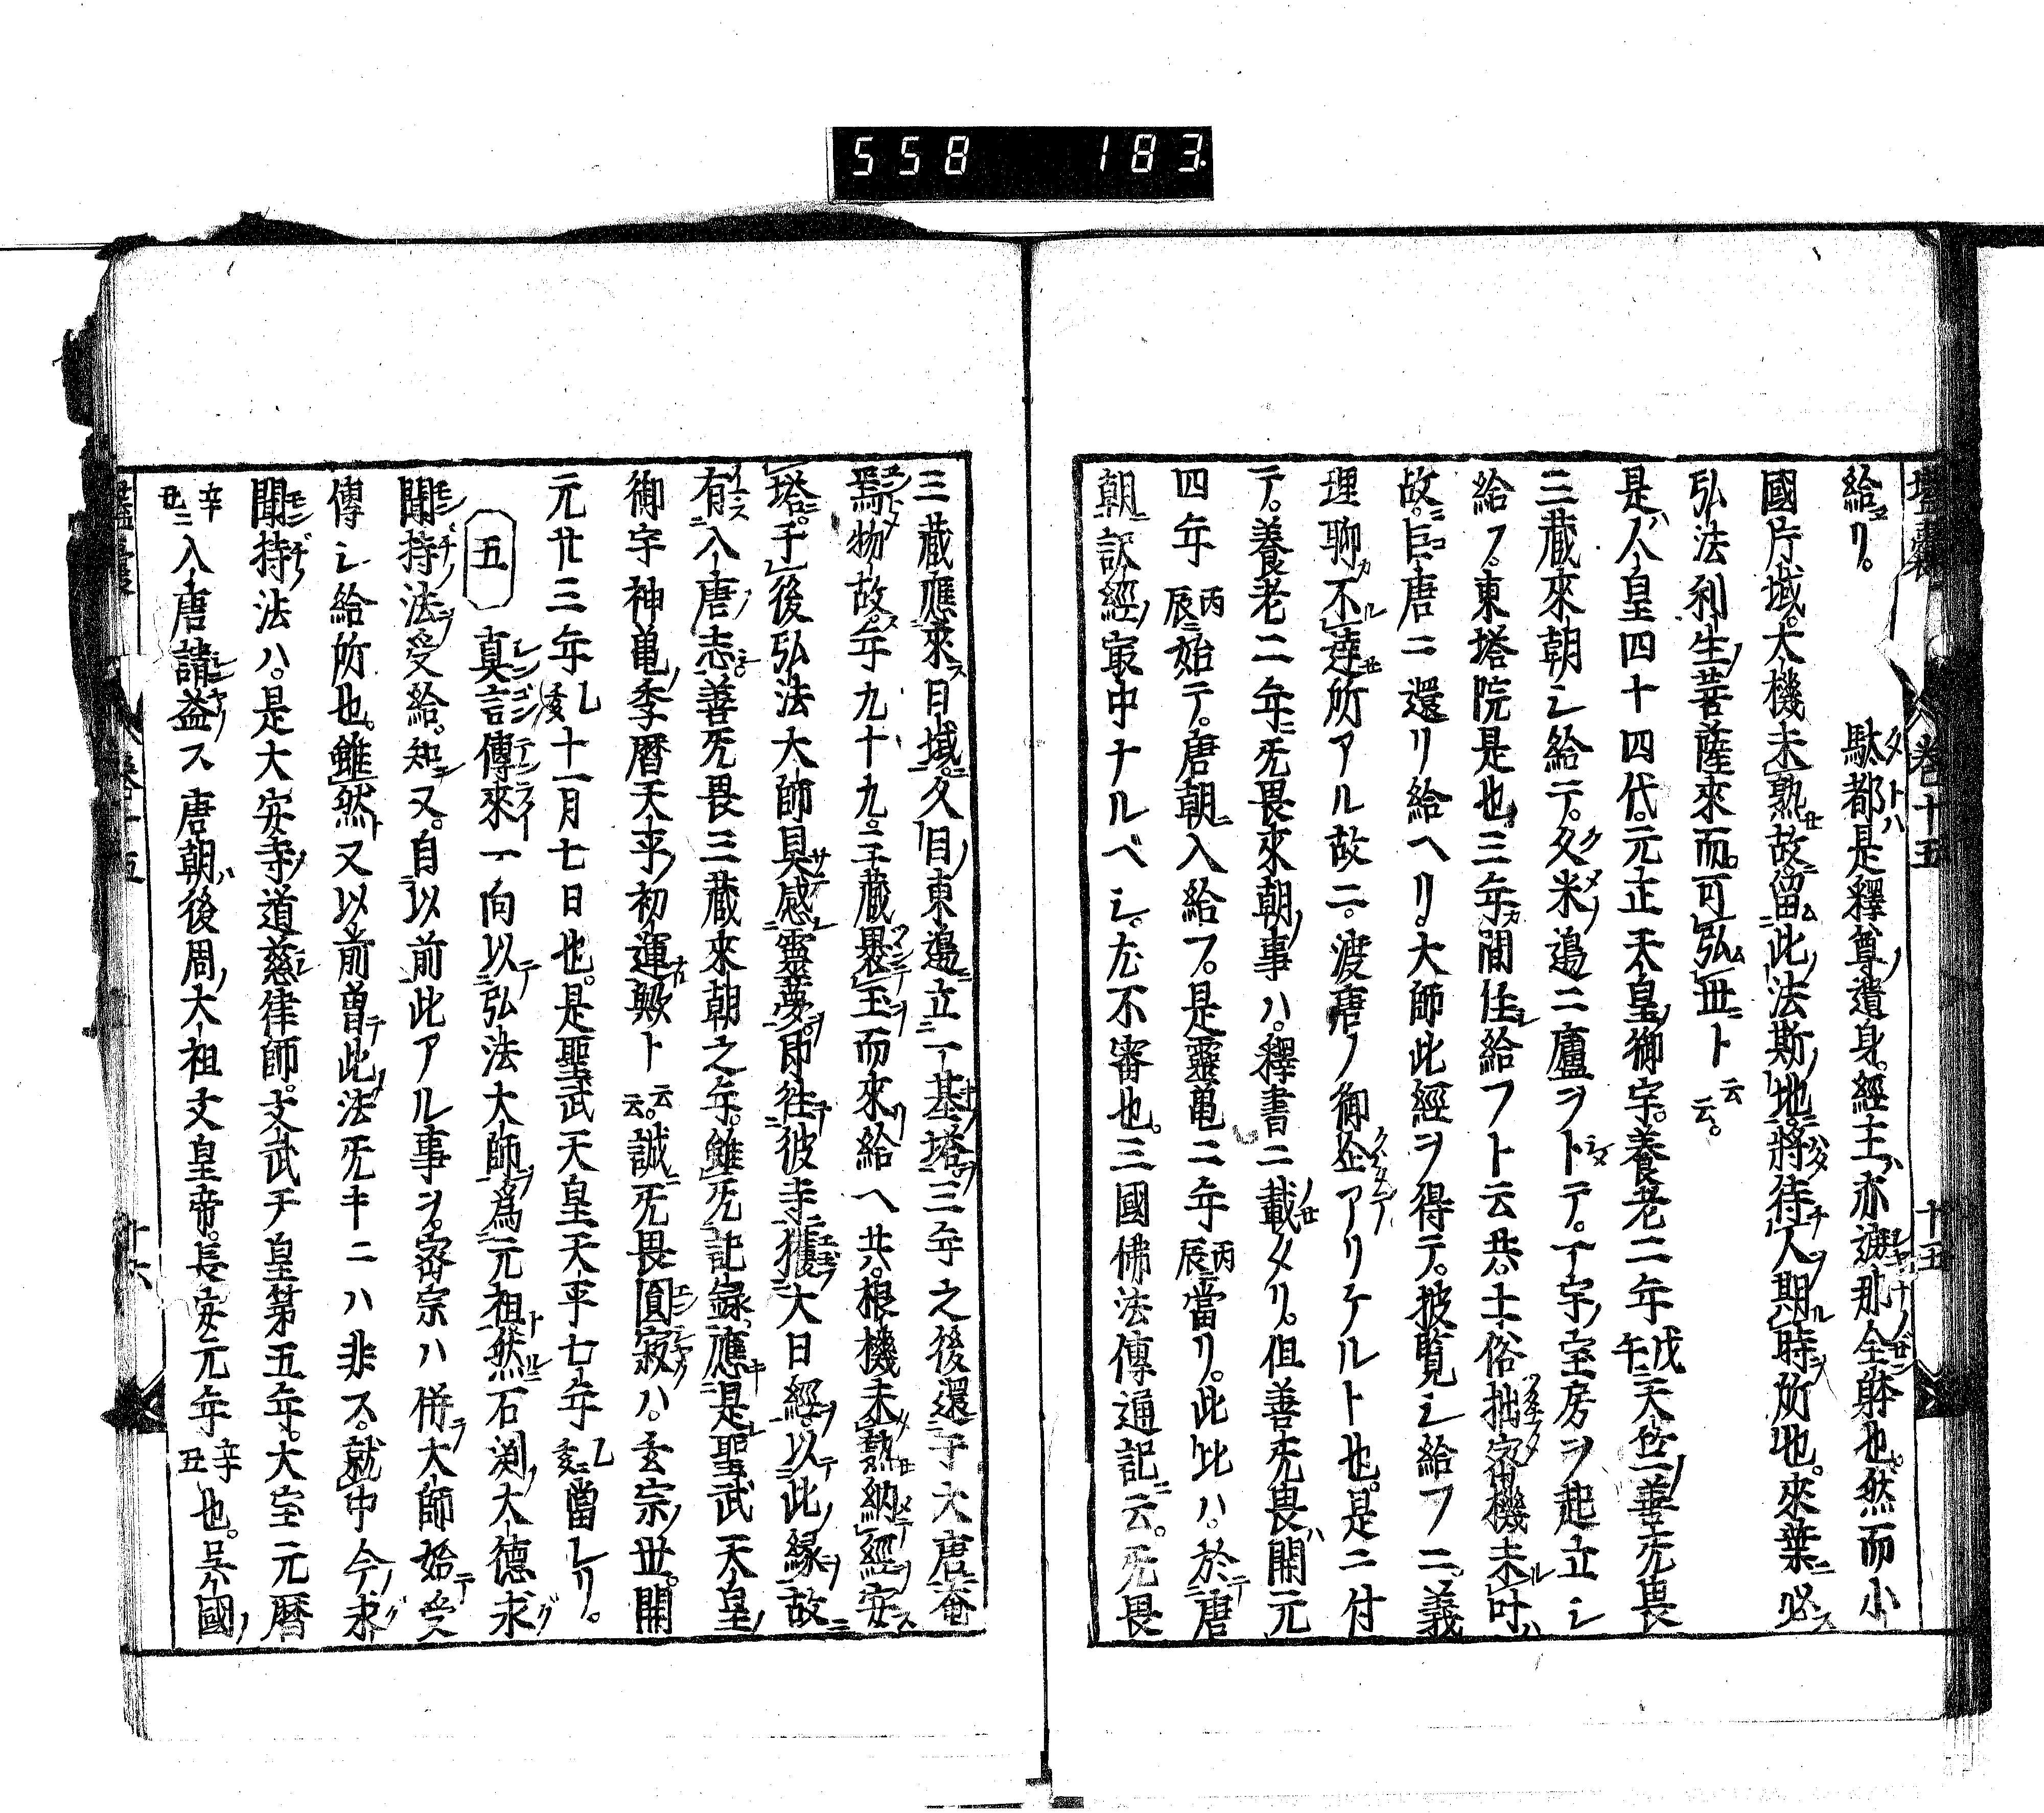 558 183
壒囊 巻十五 十五
給ヌリ。 駄都是釋尊ノ遺身。經王ハ亦遮那ノ全躰也。然而小
國片域。大機未熟故ニ留此ノ法斯ノ地ニ將待人ヲ期時ヲ所也。來葉ニ必ス
弘法利生ノ菩薩來而。可弘世ニト云云。
是ハ人皇四十四代。元正天皇ノ御宇。養老二年戊午ニ天竺ノ善无畏
三藏來朝シ給テ。久米ノ邉ニ廬ヲトシメテ。一宇ノ室房ヲ起立シ
給フ。東塔院是也。三年カ間住シ給フト云共。土俗拙ク密機未叶ハ
故ニ。巨唐ニ還リ給ヘリ。大師此經ヲ得テ。披覧シ給フニ。義
理聊カ不達所アル故ニ。渡唐ノ御企アリケルト也。是ニ付
テ。養老二年ニ无畏來朝ノ事ハ。釋書ニ載セタリ。但善无畏ハ開元
四年丙辰ニ始テ。唐朝ニ入給フ。是靈亀二年丙辰ニ當リ。此比ハ。於唐
朝ニ訳經ノ最中ナルベシ。尤不審也。三國佛法傳通記ニ云。无畏
三藏應來ス日域ニ。久目ノ東邉ニ立一基ノ塔ヲ。三年之後還于大唐ニ。奄
焉物故ス。年九十九。三藏褁玉ヲ而來リ給ヘ共。根機未熟納經ヲ安ス
塔ニ。于後弘法大師具感靈夢ヲ。即往彼寺ニ獲大日經ヲ。以此ノ縁ヲ故ニ
有入唐ノ志。善无畏三藏來朝之年。雖无記録。應是聖武天皇ノ
御宇神亀ノ季暦天平ノ初運歟ト云云。誠ニ无畏圓寂ハ。玄宗ノ世。開
元廿三年乙亥十一月七日也。是聖武天皇天平七年乙亥ニ當レリ。
五 真言傳來一向以弘法大師ヲ爲元祖ト然ルニ石渕ノ大德求
聞持ノ法ヲ受給。知ヌ又。自以前此アル事ヲ。密宗ハ併ラ大師始テ受
傳シ給所也。雖然ト又以前曽テ此ノ法无キニハ非ス。就中今ノ求
聞持ノ法ハ。是大安寺ノ道慈律師。文武天皇第五年。大宝元暦
辛丑ニ入唐請益ス唐朝ハ後周ノ大祖文皇帝。長安元年辛丑也。呉國ノ
壒囊 巻十五 十六